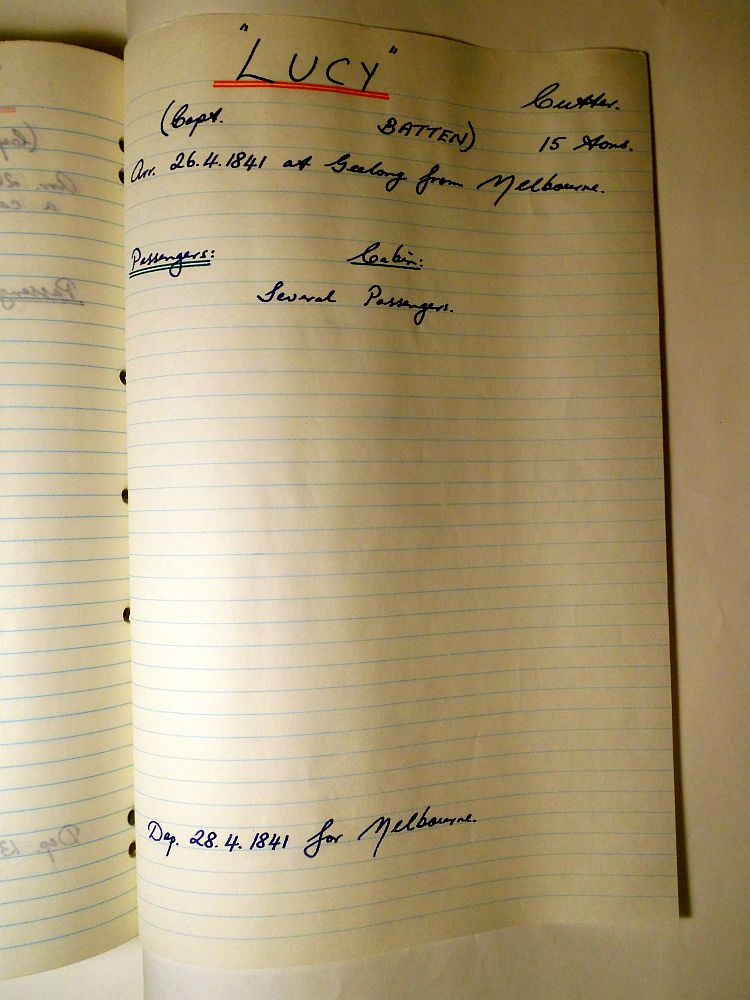 "LUCY"
Cutter.
(Capt. BATTEN) 15 Tons.
Arr. 26.4.1841 at Geelong from Melbourne.
Passengers: Cabin:
Several Passengers.
Dep. 28.4.1841 for Melbourne.